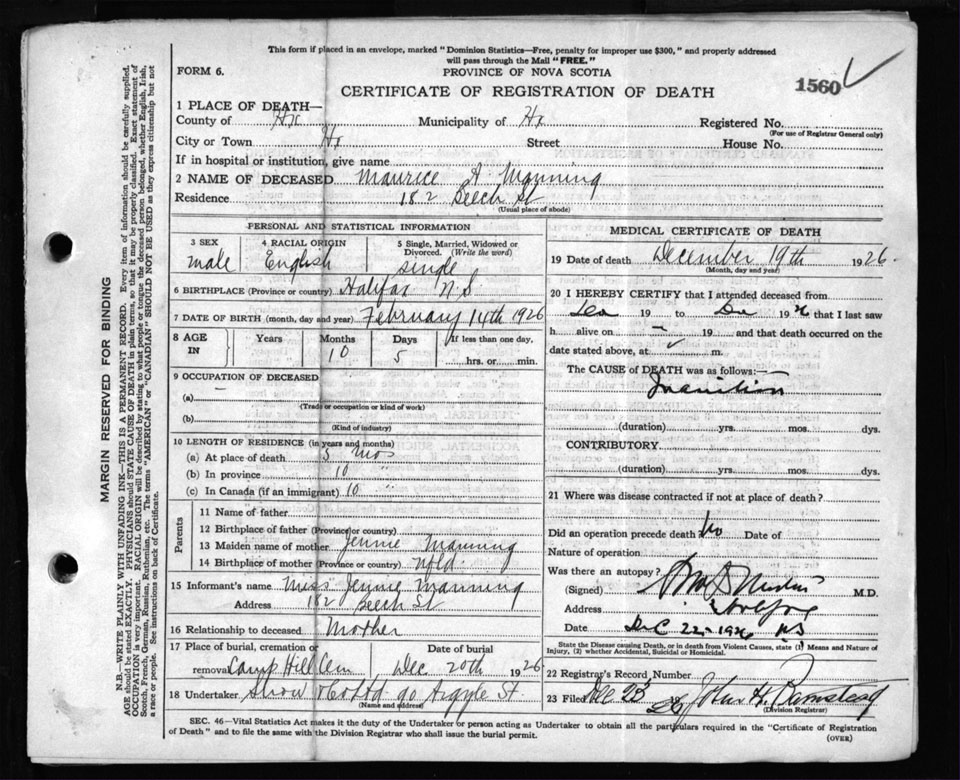 This form if placed in an envelope, marked "Dominion Statistics—Free, penalty for improper use $300," and properly addressed
will pass through the Mail "FREE."
FORM 6.
PROVINCE OF NOVA SCOTIA
1560
CERTIFICATE OF REGISTRATION OF DEATH
1 PLACE OF DEATH—
County of Hx Municipality of Hx Registered No.
(For use of Registrar General only)
City or Town Hx Street House No.
If in hospital or institution, give name
2 NAME OF DECEASED Maurice A Manning
Residence 182 Beech St
(Usual place of abode)
PERSONAL AND STATISTICAL INFORMATION
3 SEX 4 RACIAL ORIGIN 5 Single, Married, Widowed or Divorced. (Write the word)
male English single
6 BIRTHPLACE (Province or country) Halifax N.S
7 DATE OF BIRTH (month, day and year) February 14th 1926
8 AGE IN Years Months Days If less than one day,
10 5 hrs. or min.
9 OCCUPATION OF DECEASED
(a)
(Trade or occupation or kind of work)
(b)
(Kind of industry)
10 LENGTH OF RESIDENCE (in years and months)
(a) At place of death 5 mos
(b) In province 10 "
(c) In Canada (if an immigrant) 10 "
Parents
11 Name of father
12 Birthplace of father (Province or country)
13 Maiden name of mother Jennie Manning
14 Birthplace of mother (Province or country) Nfld.
15 Informant's name Miss Jennie Manning
Address 182 Beech St
16 Relationship to deceased Mother
17 Place of burial, cremation or removal Date of burial
Camp Hill Cem Dec 20th 1926
18 Undertaker Snow & Co Ltd 90 Argyle St.
(Name and address)
MEDICAL CERTIFICATE OF DEATH
19 Date of death December 19th 1926.
(Month, day and year)
20 I HEREBY CERTIFY that I attended deceased from
19 to 1926 that I last saw
h alive on — 19 and that death occurred on the
date stated above, at m.
The CAUSE of DEATH was as follows:
Inanition
(duration) yrs. mos. dys.
CONTRIBUTORY
(duration) yrs. mos. dys.
21 Where was disease contracted if not at place of death?
Did an operation precede death No Date of
Nature of operation
Was there an autopsy?
(Signed) M.D.
Address Halifax
Date Dec 22 1926 NS
State the Disease causing Death, or in death from Violent Causes, state (1) Means and Nature of
Injury, (2) whether Accidental, Suicidal or Homicidal.
22 Registrar's Record Number
23 Filed Dec 23 1926 John H.
(Division Registrar)
SEC. 46—Vital Statistics Act makes it the duty of the Undertaker or person acting as Undertaker to obtain all the particulars required in the "Certificate of Registration
of Death" and to file the same with the Division Registrar who shall issue the burial permit.
(OVER)
MARGIN RESERVED FOR BINDING
N.B.—WRITE PLAINLY WITH UNFADING INK—THIS IS A PERMANENT RECORD. Every item of information should be carefully supplied.
AGE should be stated EXACTLY. PHYSICIANS should STATE CAUSE OF DEATH in plain terms, so that it may be properly classified. Exact statement of
OCCUPATION is very important. RACIAL ORIGIN will be described by stating to what people or tongue the deceased person belonged, whether English, Irish,
Scotch, French, German, Russian, Ruthenian, etc. The terms "AMERICAN" or "CANADIAN" SHOULD NOT BE USED as they express citizenship but not
a race or people. See instructions on back of Certificate.